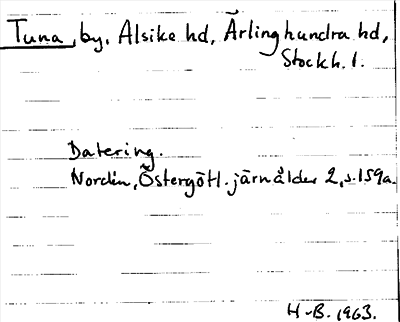 Tuna, by, Alsike hd, Ärlinghundra hd,
Stockh. l.
Datering.
Nordén, Östergötl. järnålder 2, s. 159a.
H-B. 1963.